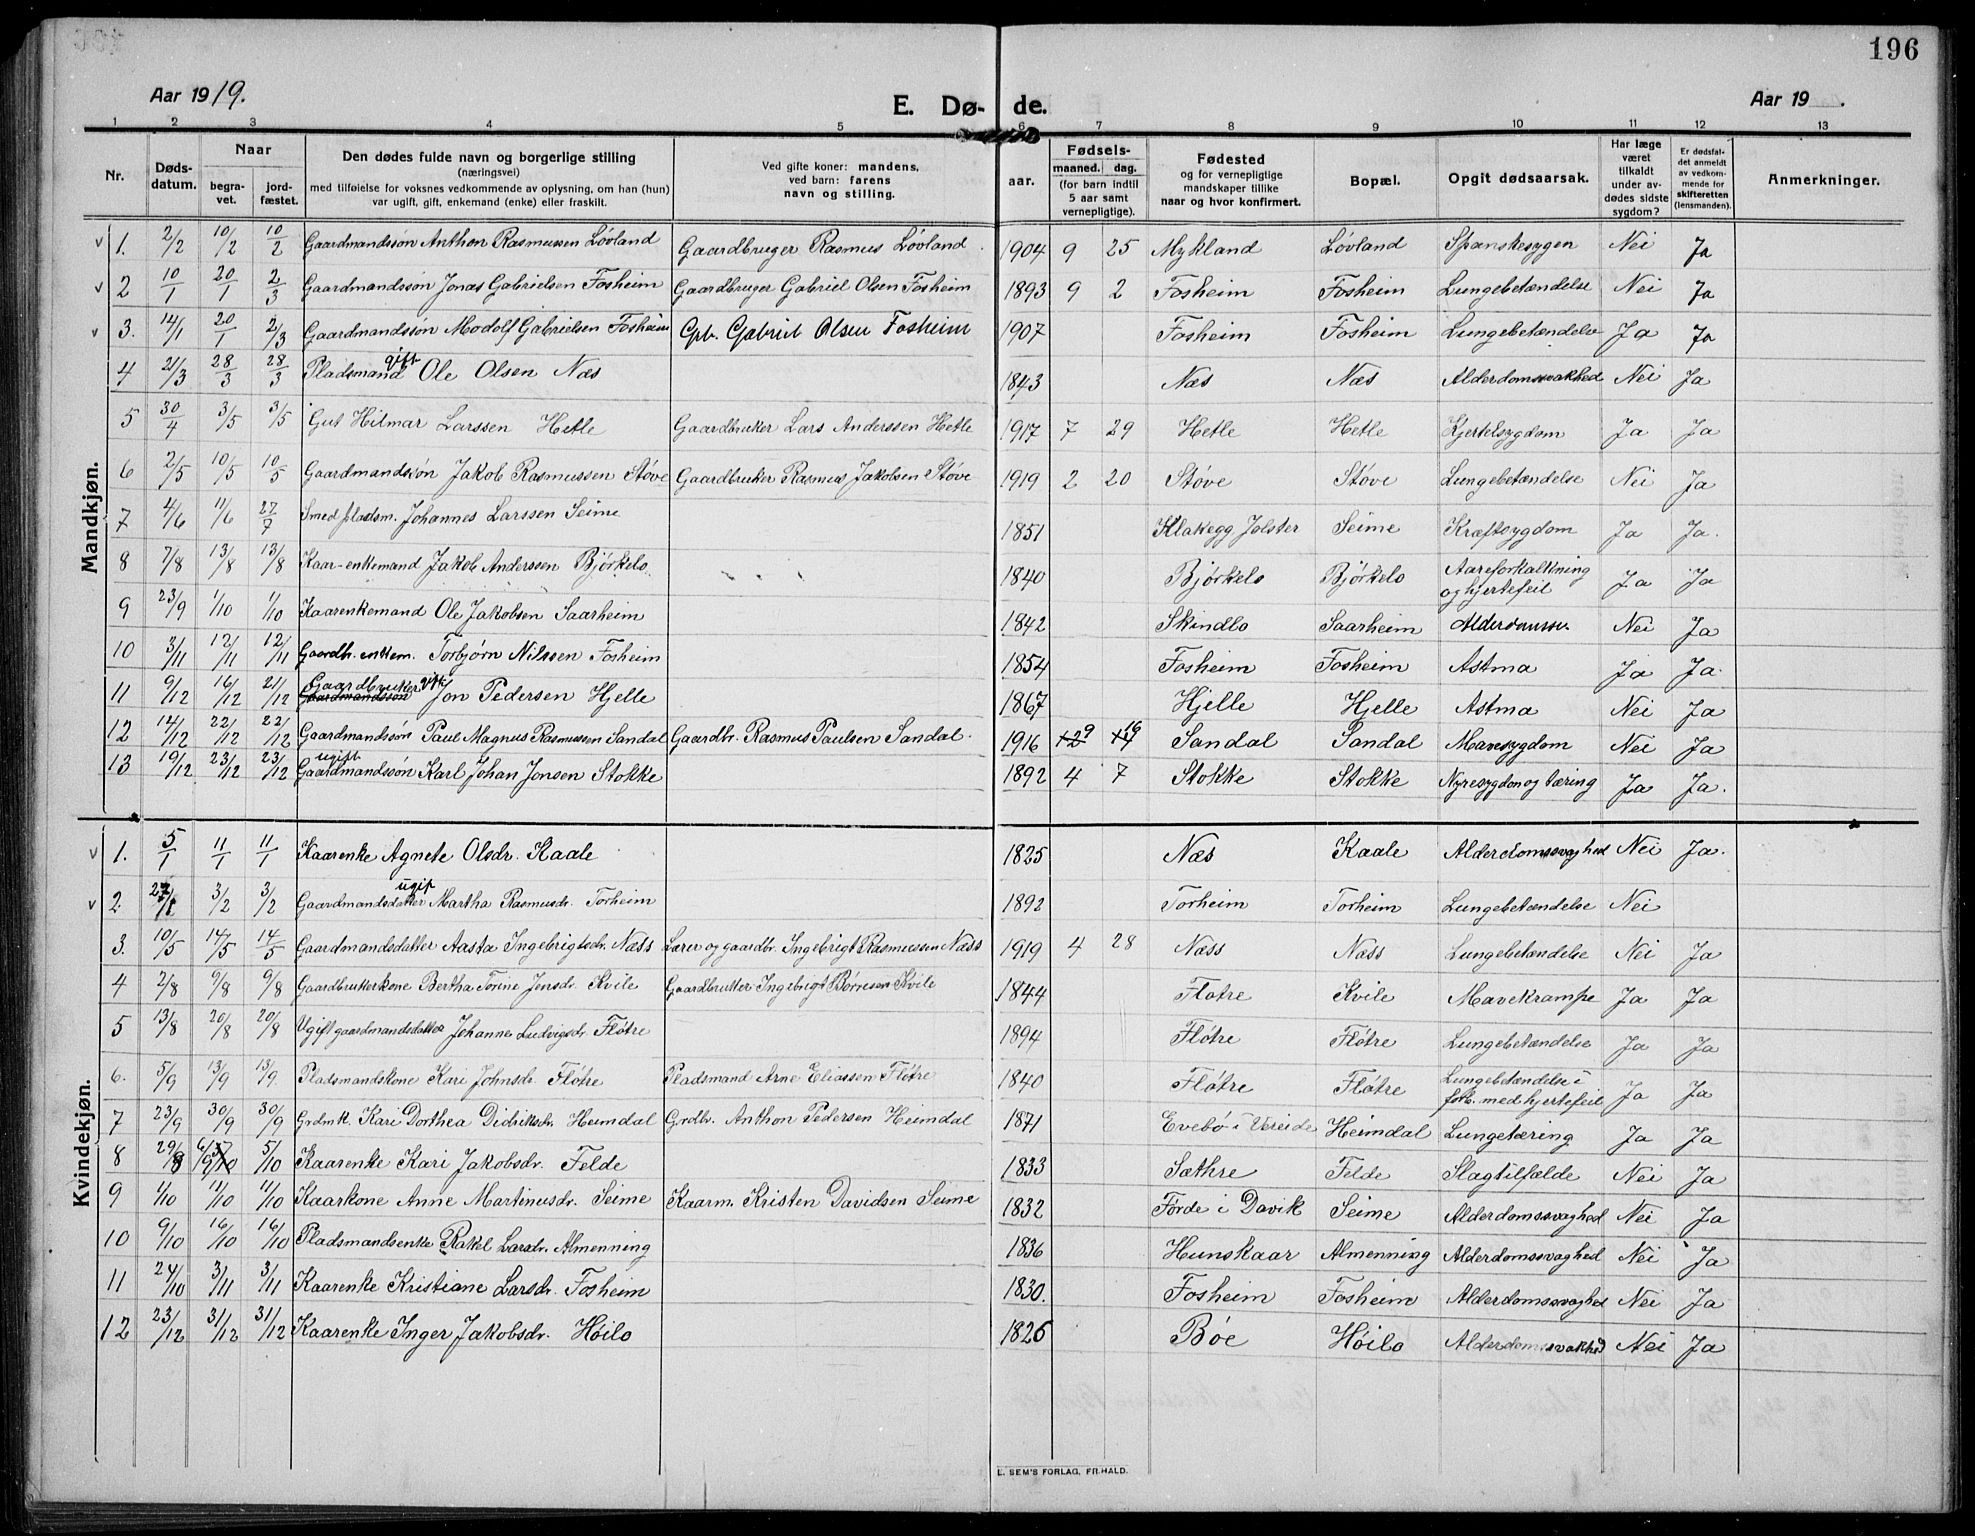 196
Aar 1919.
E. Dø-de.
Aar 19 .
1 2 3 4 5 6 7 8 9 10 11 12 13
Nr.
Døds-
datum.
Naar
begra-
vet.
jord-
fæstet.
Den dødes fulde navn og borgerlige stilling
(næringsvei)
med tilføielse for voksnes vedkommende av oplysning, om han (hun)
var ugift, gift, enkemand (enke) eller fraskilt.
Ved gifte koner: mandens,
ved barn: farens
navn og stilling.
Fødsels-
aar. maaned. dag.
(for barn indtil
5 aar samt
vernepligtige).
Fødested
og for vernepligtige
mandskaper tillike
naar og hvor konfirmert.
Bopæl.
Opgit dødsaarsak.
Har læge
været
tilkaldt
under av-
dødes sidste
sygdom?
Er dødsfal-
det anmeldt
av vedkom-
mende for
skifteretten
(lensmanden).
Anmerkninger.
Mandkjøn.
v 1. 2/2 10/2 10/2 Gaardmandssøn Anthon Rasmussen Løvland Gaardbruger Rasmus Løvland 1904 9 25 Mykland Løvland Spanskesygen Nei Ja
v 2 10/1 20/1 2/3 Gaardmandssøn Jonas Gabrielsen Fosheim Gaardbruger Gabriel Olsen Fosheim 1893 9 2 Fosheim Fosheim Lungebetændelse Nei Ja
v 3. 14/1 20/1 2/3 Gaardmandssøn Modolf Gabrielsen Fosheim Gbr. Gabriel Olsen Fosheim 1907 Fosheim Fosheim Lungebetændelse Ja Ja
4 21/3 28/3 28/3 Pladsmand gift Ole Olsen Næs 1843 Næs Næs Alderdomssvakhed Nei Ja
5 30/4 3/5 3/5 Gut Hilmar Larssen Hetle Gaardbruker Lars Anderssen Hetle 1917 7 29 Hetle Hetle Kjertelsygdom Ja Ja
6 2/5 10/5 10/5 Gaardmandssøn Jakob Rasmussen Støve Gaardbruker Rasmus Jakobsen Støve 1919 2 20 Støve Støve Lungebetændelse Nei Ja
7 4/6 11/6 27/7 Smed pladsm. Johannes Larssen Seime 1851 Klakegg Jølster Seime Kræftsygdom Ja Ja.
8 7/8 13/8 13/8 Kaar-enkemand Jakob Anderssen Bjørkelo. 1840 Bjørkelo Bjørkelo Aareforkalkning og hjertefeil Ja Ja
9 23/9 1/10 1/10 Kaarenkemand Ole Jakobsen Saarheim 1842 Skindlo Saarheim Alderdomssv. Nei Ja
10 3/11 12/11 12/11 Gaardbr. enkem. Torbjørn Nilssen Fosheim 1854 Fosheim Fosheim Astma Ja Ja.
11 9/12 16/12 21/12 Gaardbruker Gaardmandssøn Jon Pedersen Hjelle 1867 Hjelle Hjelle Astma Nei Ja
12 14/12 22/12 22/12 Gaardmandssøn Paul Magnus Rasmussen Sandal Gaardbr. Rasmus Paulsen Sandal. 1916 9 19 Sandal Sandal Mavesygdom Nei Ja
13 19/12 23/12 23/12 ugift Gaardmandssøn Karl Johan Jonsen Stokke 1892 4 7 Stokke Stokke Nyresygdom og tæring Ja Ja.
Kvindekjøn.
v 1. 5/1 11/1 11/1 Kaarenke Agnete Olsdr. Kaale 1825 Næs Kaale Alderdomssvaghed Nei Ja.
v 2. 27/1 3/2 3/2 Gaardmandsdatter ugif Martha Rasmusdr. Torheim 1892 Torheim Torheim Lungebetændelse Nei
3. 10/5 14/5 14/5 Gaardmandsdatter Aasta Ingebrigtsdr. Næss Lærer og gaardbr. Ingebrigt Rasmussen Næss 1919 4 28 Næss Næss Lungebetændelse Nei Ja
4 2/8 9/8 9/8 Gaardbrukerkone Bertha Torine Jensdr. Kvile Gaardbruker Ingebrigt Børresen Kvile 1844 Fløtre Kvile Mavekrampe Ja Ja
5 13/8 20/8 20/8 Ugift gaardmandsdatter Johanne Ludvigsdr. Fløtre 1894 Fløtre Fløtre Lungebetændelse Ja Ja
6. 5/9 13/9 13/9. Pladsmandskone Kari Johnsdr. Fløtre Pladsmand Arne Eliassen Fløtre 1840 Fløtre Fløtre Lungebetændelse i forb. med hjertefeil Ja Ja
7 23/9 30/9 30/9 Grdmk. Kari Dorthea Didriksdr. Heimdal Grdbr. Anthon Pedersen Heimdal 1871 Evebø i Vereide Heimdal Lungetæring Ja Ja
8 29/9 5/10 Kaarenke Kari Jakobsdr. Felde 1833 Sæthre Felde Slagtilfælde Nei Ja
9 1/10 11/10 11/10 Kaarkone Anne Martinusdr. Seime Kaarm. Kristen Davidsen Seime 1832 Førde i Davik Seime Alderdomssvaghed Nei Ja
10 9/10 16/10 16/10 Pladsmandsenke Rakel Larsdr. Almenning 1836 Hunskaar Almenning Alderdomssvaghed Nei Ja
11 24/10 3/11 3/11 Kaarenke Kristiane Larsdr. Fosheim 1830. Fosheim Fosheim Alderdomssvaghed Nei Ja
12 23/12 31/12 31/12 Kaarenke Inger Jakobsdr. Høilo 1826 Bøe Høilo Alderdomssvakhed Nei Ja
E. SEM'S FORLAG, FR.HALD.